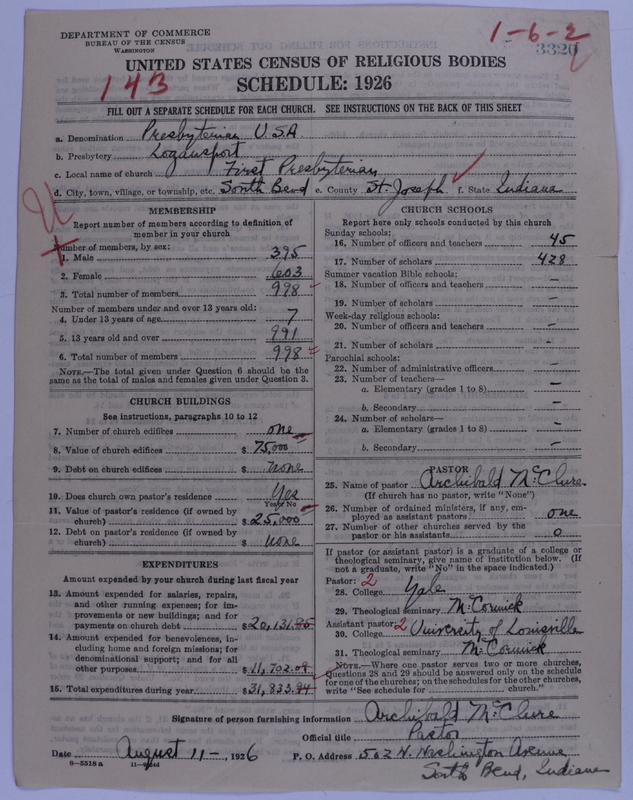 DEPARTMENT OF COMMERCE
BUREAU OF THE CENSUS
WASHINGTON
1-6-2
3320
143
UNITED STATES CENSUS OF RELIGIOUS BODIES
SCHEDULE: 1926
FILL OUT A SEPARATE SCHEDULE FOR EACH CHURCH. SEE INSTRUCTIONS ON THE BACK OF THIS SHEET
a. Denomination Presbyterian U.S.A
b. Presbytery Logansport
c. Local name of church First Presbyterian
d. City, town, village, or township, etc. South Bend e. County St. Joseph f. State Indiana
MEMBERSHIP
Report number of members according to definition of
member in your church
Number of members, by sex:
1. Male 395
2. Female 603
3. Total number of members 998
Number of members under and over 13 years old:
4. Under 13 years of age 7
5. 13 years old and over 991
6. Total number of members 998
NOTE.—The total given under Question 6 should be the
same as the total of males and females given under Question 3.
CHURCH BUILDINGS
See instructions, paragraphs 10 to 12
7. Number of church edifices one
8. Value of church edifices $ 75,000
9. Debt on church edifices $ none
10. Does church own pastor's residence Yes
Yes or No
11. Value of pastor's residence (if owned by
church) $ 25,000
12. Debt on pastor's residence (if owned by
church) $ none
EXPENDITURES
Amount expended by your church during last fiscal year
13. Amount expended for salaries, repairs,
and other running expenses; for im-
provements or new buildings; and for
payments on church debt $ 20,131.85
14. Amount expended for benevolences, in-
cluding home and foreign missions; for
denominational support; and for all
other purposes $ 11,702.09
15. Total expenditures during year $ 31,833.94
CHURCH SCHOOLS
Report here only schools conducted by this church
Sunday schools:
16. Number of officers and teachers 45
17. Number of scholars 428
Summer vacation Bible schools:
18. Number of officers and teachers –
19. Number of scholars –
Week-day religious schools:
20. Number of officers and teachers –
21. Number of scholars –
Parochial schools:
22. Number of administrative officers –
23. Number of teachers—
a. Elementary (grades 1 to 8) –
b. Secondary –
24. Number of scholars—
a. Elementary (grades 1 to 8) –
b. Secondary –
PASTOR
25. Name of pastor Archibald McClure
(If church has no pastor, write "None")
26. Number of ordained ministers, if any, em-
ployed as assistant pastors one
27. Number of other churches served by the
pastor or his assistants 0
If pastor (or assistant pastor) is a graduate of a college or
theological seminary, give name of institution below. (If
not a graduate, write "No" in the space indicated.)
Pastor: 2
28. College Yale
29. Theological seminary McCormick
Assistant pastor: 2
30. College University of Louisville
31. Theological seminary McCormick
NOTE.—Where one pastor serves two or more churches,
Questions 28 and 29 should be answered only on the schedule
for one of the churches; on the schedules for the other churches,
write "See schedule for church."
Signature of person furnishing information Archibald McClure
Official title Pastor
Date August 11 -, 1926 P. O. Address 502 W. Washington Avenue
South Bend, Indiana
8-5518 a